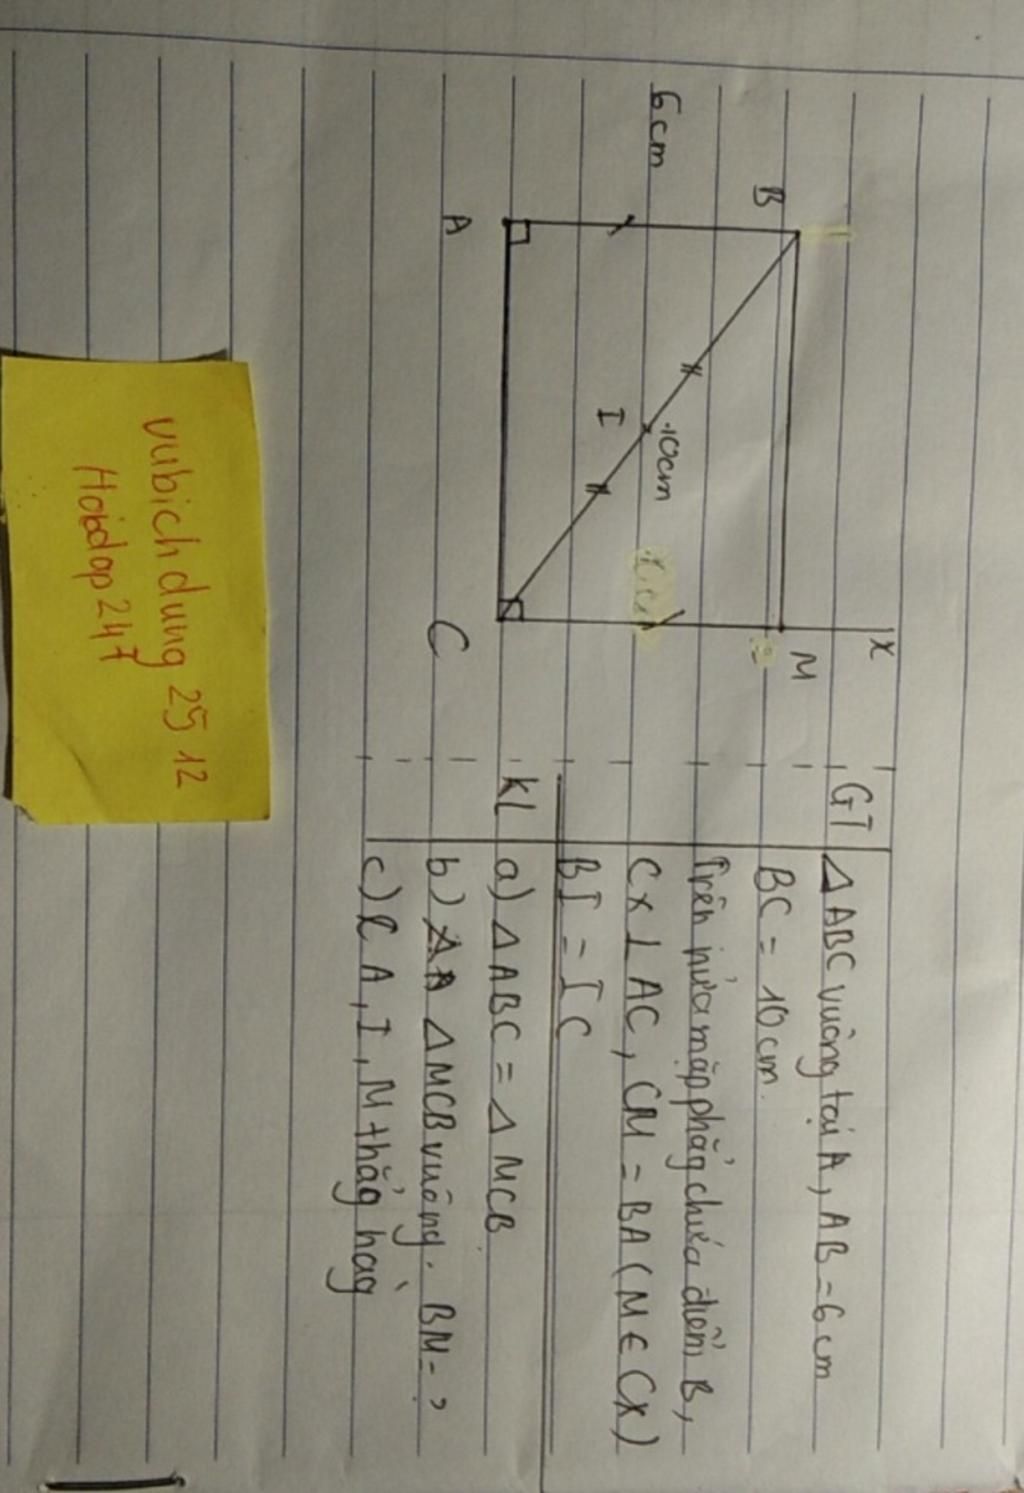 6cm
B
A
I
10cm
C
M
x
GT
ΔABC vuông tại A, AB = 6cm
BC = 10cm.
Trên nửa mặp phẳg chứa điểm B,
Cx ⊥ AC, CM = BA (M ∈ Cx)
BI = IC
KL
a) ΔABC = ΔMCB.
b) ΔMCB vuông. BM = ?
c) A, I, M thẳg hàg
vubichdung2512
Hoidap247